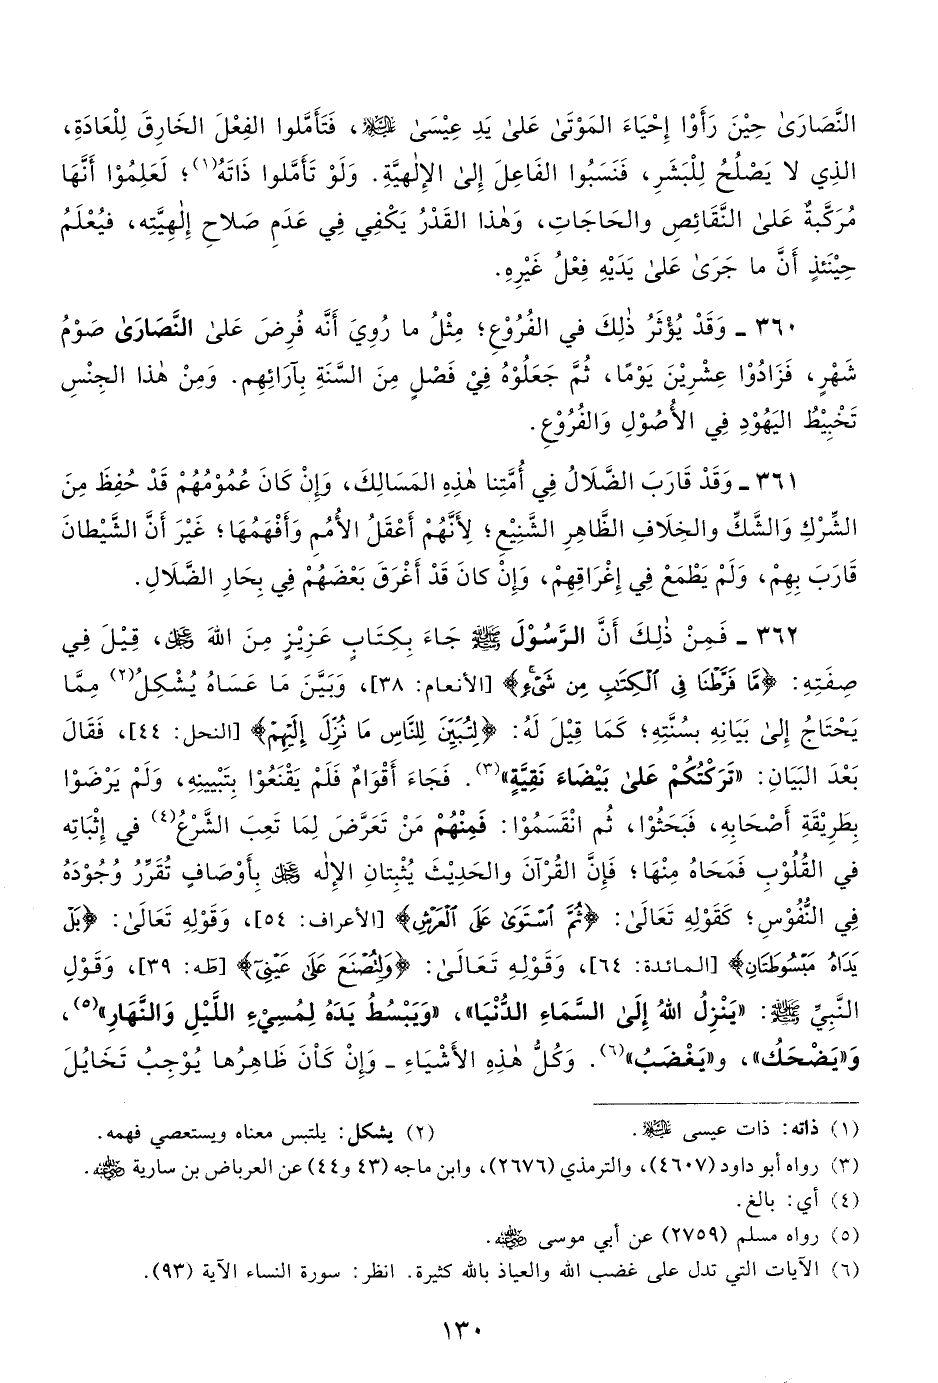 النَّصَارَىٰ حِيْنَ رَأَوْا إِحْيَاءَ المَوْتَىٰ عَلىٰ يَدِ عِيْسَىٰ عليه السلام، فَتَأَمَّلوا الفِعْلَ الخَارِقَ لِلْعَادَةِ،
الذِي لا يَصْلُحُ لِلْبَشَرِ، فَنَسَبُوا الفَاعِلَ إِلىٰ الإِلٰهيَّةِ. وَلَوْ تَأَمَّلوا ذَاتَهُ(١)؛ لَعَلِمُوْا أَنَّهَا
مُرَكَّبةٌ عَلىٰ النَّقَائِصِ والحَاجَاتِ، وَهٰذا القَدْرُ يَكْفِي فِي عَدَمِ صَلاحِ إِلٰهِيَّتِه، فَيُعْلَمُ
حِيْنَئذٍ أَنَّ ما جَرَىٰ عَلىٰ يَدَيْهِ فِعْلُ غَيْرِهِ.
٣٦٠ ـ وَقَدْ يُؤْثَرُ ذٰلِكَ في الفُرُوْعِ؛ مِثْلُ ما رُوِيَ أَنَّه فُرِضَ عَلىٰ النَّصَارَىٰ صَوْمُ
شَهْرٍ، فَزَادُوْا عِشْرِيْنَ يَوْمًا، ثُمَّ جَعَلُوْهُ فِيْ فَصْلٍ مِنَ السَّنَةِ بِآرَائِهِم. وَمِنْ هٰذا الجِنْسِ
تَخْبِيْطُ اليَهُوْدِ فِي الأُصُوْلِ وَالفُرُوْعِ.
٣٦١ ـ وَقَدْ قَارَبَ الضَّلَالُ فِي أُمَّتِنا هٰذِهِ المَسَالِكَ، وَإِنْ كَانَ عُمُوْمُهُمْ قَدْ حُفِظَ مِنَ
الشِّرْكِ وَالشَّكِّ والخِلَافِ الظَّاهِرِ الشَّنِيْعِ؛ لِأَنَّهُمْ أَعْقَلُ الأُمُمِ وَأَفْهَمُهَا؛ غَيْرَ أَنَّ الشَّيْطانَ
قَارَبَ بِهِمْ، وَلَمْ يَطْمَعْ فِي إِغْرَاقِهِمْ، وَإِنْ كانَ قَدْ أَغْرَقَ بَعْضَهُمْ فِي بِحَارِ الضَّلَالِ.
٣٦٢ ـ فَمِنْ ذٰلِكَ أَنَّ الرَّسُوْلَ ﷺ جَاءَ بِكِتَابٍ عَزِيْزٍ مِنَ اللهَ عز وجل، قِيْلَ فِي
صِفَتِهِ: ﴿مَّا فَرَّطْنَا فِي ٱلْكِتَٰبِ مِن شَيْءٍ﴾ [الأنعام: ٣٨]، وَبَيَّنَ مَا عَسَاهُ يُشْكِلُ(٢) مِمَّا
يَحْتَاجُ إِلىٰ بَيَانِهِ بِسُنَّتِهِ؛ كَمَا قِيْلَ لَهُ: ﴿لِتُبَيِّنَ لِلنَّاسِ مَا نُزِّلَ إِلَيْهِمْ﴾ [النحل: ٤٤]، فَقَالَ
بَعْدَ البَيَانِ: «تَرَكْتُكُمْ عَلىٰ بَيْضَاءَ نَقِيَّةٍ»(٣). فَجَاءَ أَقْوَامٌ فَلَمْ يَقْنَعُوْا بِتَبْيِينِهِ، وَلَمْ يَرْضَوْا
بِطَرِيْقَةِ أَصْحَابِهِ، فَبَحَثُوْا، ثُم انْقَسَمُوْا: فَمِنْهُمْ مَنْ تَعَرَّضَ لِمَا تَعِبَ الشَّرْعُ(٤) في إِثْبَاتِه
في القُلُوْبِ فَمَحَاهُ مِنْهَا؛ فَإِنَّ القُرْآنَ والحَدِيْثَ يُثْبِتانِ الإِلٰه عز وجل بِأَوْصَافٍ تُقَرِّرُ وُجُوْدَهُ
فِي النُّفُوْسِ؛ كَقَوْلِهِ تَعَالَىٰ: ﴿ثُمَّ ٱسْتَوَىٰ عَلَى ٱلْعَرْشِ﴾ [الأعراف: ٥٤]، وَقَوْلِهِ تَعَالَىٰ: ﴿بَلْ
يَدَاهُ مَبْسُوطَتَانِ﴾ [المائدة: ٦٤]، وَقَوْلِهِ تَعَالَىٰ: ﴿وَلِتُصْنَعَ عَلَىٰ عَيْنِيٓ﴾ [طه: ٣٩]، وَقَوْلِ
النَّبِيِّ ﷺ: «يَنْزِلُ اللهُ إِلَىٰ السَّمَاءِ الدُّنْيَا»، «وَيَبْسُطُ يَدَهُ لِمُسِيْءِ اللَّيْلِ وَالنَّهَارِ»(٥)،
وَ«يَضْحَكُ»، و«يَغْضَبُ»(٦). وَكُلُّ هٰذِهِ الأَشْيَاءِ ـ وَإِنْ كَاْنَ ظَاهِرُها يُوْجِبُ تَخَايُلَ
(١) ذاته: ذات عيسى عليه السلام. (٢) يشكل: يلتبس معناه ويستعصي فهمه.
(٣) رواه أبو داود (٤٦٠٧)، والترمذي (٢٦٧٦)، وابن ماجه (٤٣ و٤٤) عن العرباض بن سارية رضي الله عنه.
(٤) أي: بالغ.
(٥) رواه مسلم (٢٧٥٩) عن أبي موسى رضي الله عنه.
(٦) الآيات التي تدل على غضب الله والعياذ بالله كثيرة. انظر: سورة النساء الآية (٩٣).
١٣٠